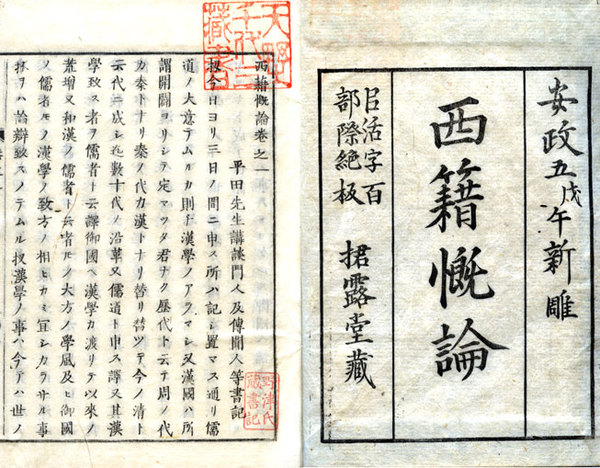 安政五戊午新雕
西籍慨論
㠯活字百
部際絶板
捃露堂藏
西籍慨論卷之一
平田先生講談門人及傳聞人等書記
扨今日ヨリ三日ノ間ニ申ス所ハ記シ置マス通リ儒
道ノ大意テムルカ則チ漢學ノアラマシ又漢國ハ所
謂開闢ヨリシテ定マツタ君ナク歴代ト云テ周ノ代
カ秦トナリ秦ノ代カ漢トナリ替リ替ツテ今ノ清ト
云代ニ成シ迄數十代ノ沿革又儒道ト申ス譯又其漢
學致ス者ヲ儒者ト云譯御國ヘ漢學カ渡リテ以來ノ
荒增又和漢ノ儒者ト云者ノ大方ノ學風及ヒ御國
ノ儒者モノ漢學ノ致方ノ相ヒカミ宜シカラサル事
ヲハ論辯致スノテムル扨漢學ノ事ハ今テハ世ノ
天野
千代二
藏書
藏書記